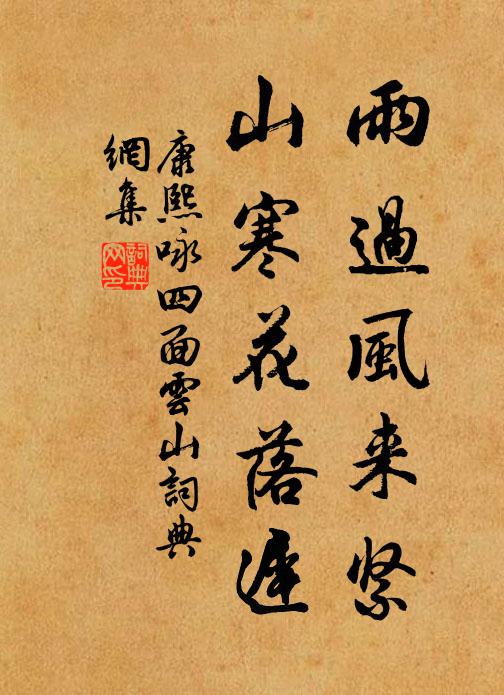 雨過風来緊
山寒花落遲
康熙咏四面雲山詞典
網集
詞典
网印